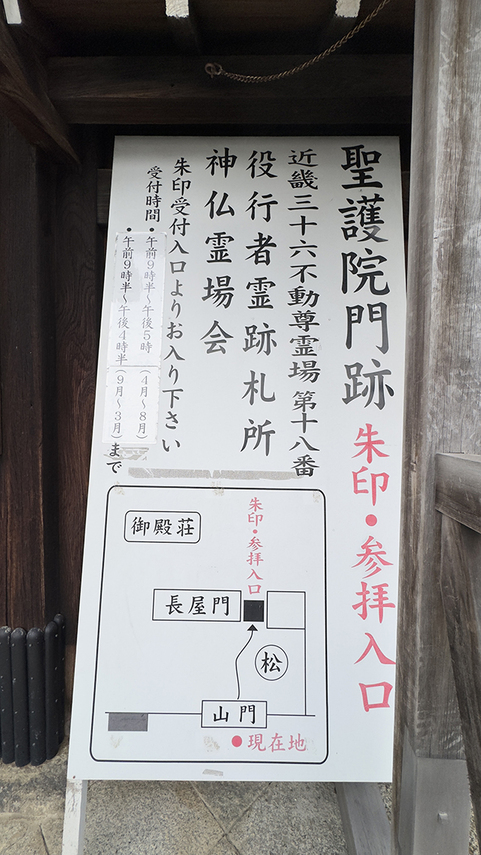 聖護院門跡 朱印・参拝入口
近畿三十六不動尊霊場 第十八番
役行者霊跡札所
神仏霊場会
朱印受付入口よりお入り下さい
受付時間・午前9時半〜午後5時(4月〜8月)
・午前9時半〜午後4時半(9月〜3月)まで
朱印・参拝入口
御殿荘
長屋門
松
山門
●現在地